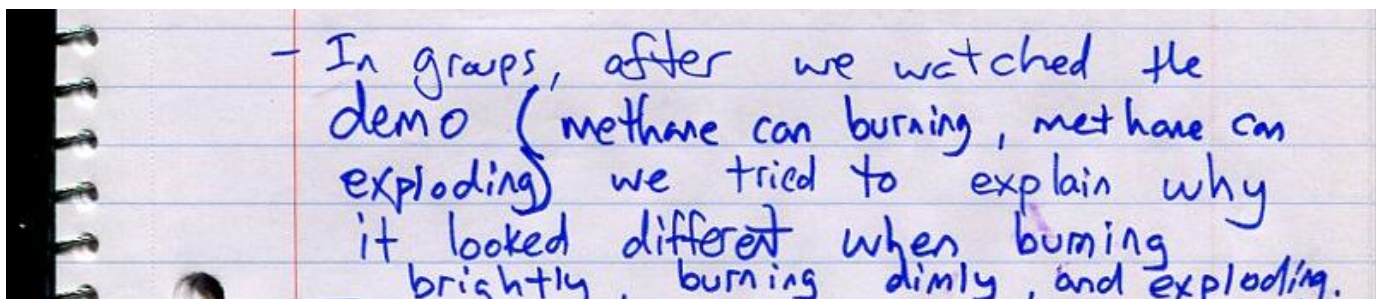 - In groups, after we watched the
demo (methane can burning, methane can
exploding) we tried to explain why
it looked different when burning
brightly, burning dimly, and exploding.